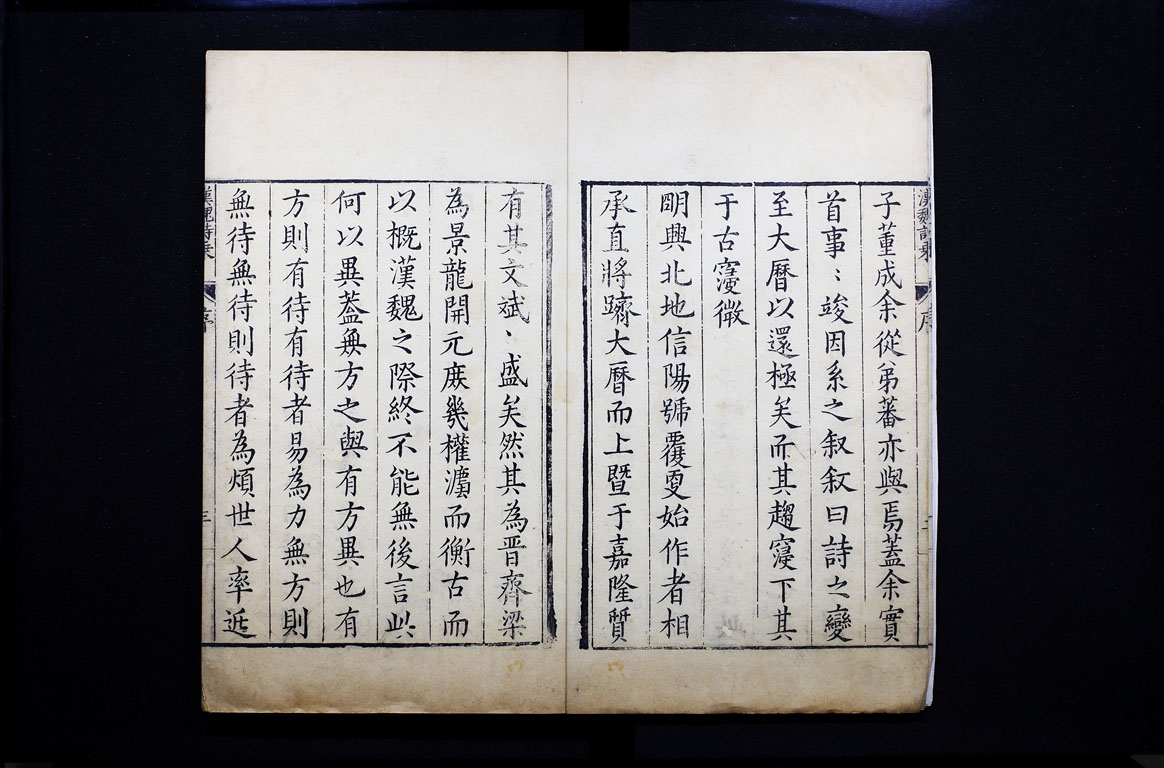 漢魏詩乘
序
子董成余從弟蕃亦與焉蓋余實
首事〻竣因系之叙叙曰詩之變
至大曆以還極矣而其趨寖下其
于古寖微
明興北地信陽號覆更始作者相
承直將躋大曆而上暨于嘉隆質
有其文斌〻盛矣然其為晋齊梁
為景龍開元庪幾權濩而衡古而
以概漢魏之際終不能無後言此
何以異蓋無方之與有方異也有
方則有待有待者易為力無方則
無待無待則待者為煩世人率近
漢魏詩乘
序
三